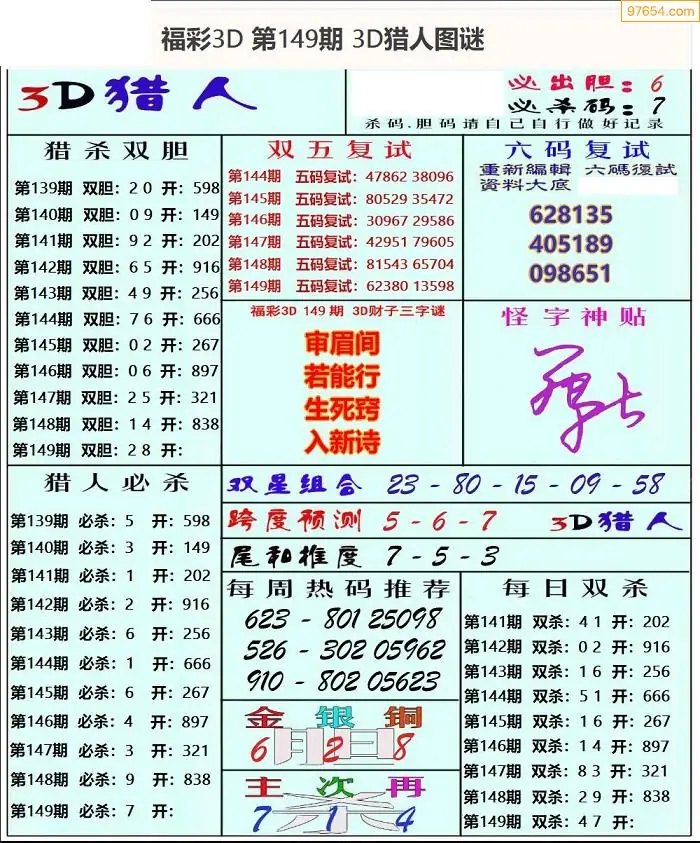 97654.com
福彩3D 第149期 3D猎人图谜
3D猎人
必出胆：6
必杀码：7
杀码.胆码请自己自行做好记录
猎杀双胆
第139期 双胆：20 开：598
第140期 双胆：09 开：149
第141期 双胆：92 开：202
第142期 双胆：65 开：916
第143期 双胆：49 开：256
第144期 双胆：76 开：666
第145期 双胆：02 开：267
第146期 双胆：06 开：897
第147期 双胆：25 开：321
第148期 双胆：14 开：838
第149期 双胆：28 开：
双五复试
第144期 五码复试：47862 38096
第145期 五码复试：80529 35472
第146期 五码复试：30967 29586
第147期 五码复试：42951 79605
第148期 五码复试：81543 65704
第149期 五码复试：62380 13598
六码复试
重新編輯 六碼復試
資料大底
628135
405189
098651
福彩3D 149期 3D财子三字谜
审眉间
若能行
生死窍
入新诗
怪字神贴
猎人必杀
第139期 必杀：5 开：598
第140期 必杀：3 开：149
第141期 必杀：1 开：202
第142期 必杀：2 开：916
第143期 必杀：6 开：256
第144期 必杀：1 开：666
第145期 必杀：6 开：267
第146期 必杀：4 开：897
第147期 必杀：3 开：321
第148期 必杀：9 开：838
第149期 必杀：7 开：
双星组合 23-80-15-09-58
跨度预测 5-6-7 3D猎人
尾和推度 7-5-3
每周热码推荐
623-801 25098
526-302 05962
910-802 05623
金银铜
胆
6 2 8
主次再
杀
7 1 4
每日双杀
第141期 双杀：41 开：202
第142期 双杀：02 开：916
第143期 双杀：16 开：256
第144期 双杀：51 开：666
第145期 双杀：16 开：267
第146期 双杀：14 开：897
第147期 双杀：83 开：321
第148期 双杀：29 开：838
第149期 双杀：47 开：